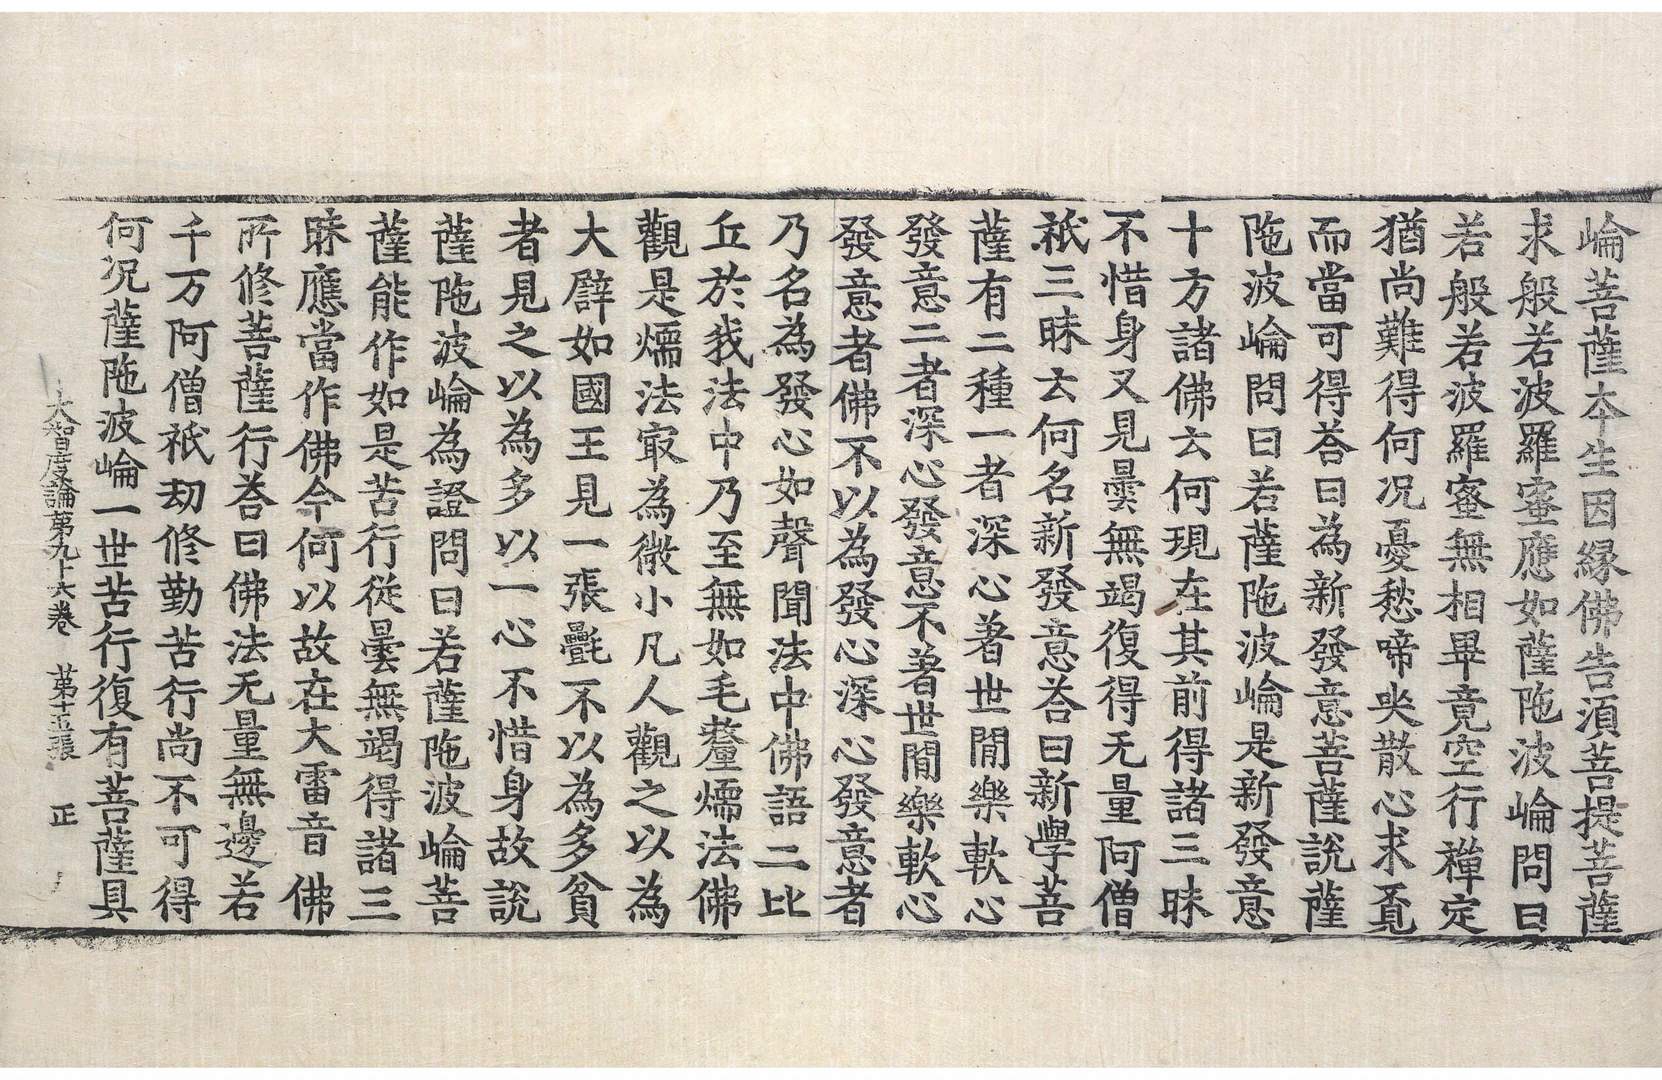 崘菩薩夲生因緣佛告湏菩提菩薩
求般若波羅蜜應如薩陁波崘問曰
若般若波羅蜜無相畢竟空行禪定
猶尚難得何况憂愁啼哭散心求覔
而當可得荅曰為新發意菩薩說薩
陁波崘問曰若薩陁波崘是新發意
十方諸佛云何現在其前得諸三昧
不惜身又見曇無竭復得无量阿僧
祇三昧云何名新發意荅曰新學菩
薩有二種一者深心著世閒樂軟心
發意二者深心發意不著世閒樂軟心
發意者佛不以為發心深心發意者
乃名為發心如聲聞法中佛語二比
丘於我法中乃至無如毛氂燸法佛
觀是燸法㝡為微小凡人觀之以為
大譬如國王見一張㲲不以為多貧
者見之以為多以一心不惜身故說
薩陁波崘為證問曰若薩陁波崘菩
薩能作如是苦行從曇無竭得諸三
昧應當作佛今何以故在大雷音佛
所修菩薩行荅曰佛法无量無邊若
千万阿僧祇劫修勤苦行尚不可得
何况薩陁波崘一世苦行復有菩薩具
大智度論第九十六卷　第十五張　正